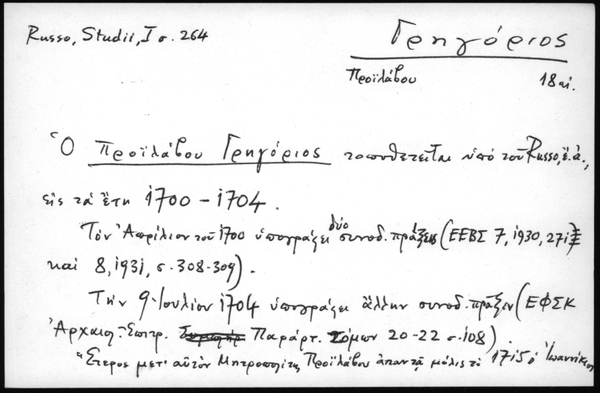 Russo, Studii, I σ. 264
Γρηγόριος
Προϊλάβου 18 αἰ.
Ὁ Προϊλάβου Γρηγόριος τοποθετεῖται ὑπὸ τοῦ Russo, ἔ.ἀ.,
εἰς τὰ ἔτη 1700 - 1704.
Τὸν Ἀπρίλιον τοῦ 1700 ὑπογράφει δύο συνοδ. πράξεις (ΕΕΒΣ 7, 1930, 271
καὶ 8, 1931, σ. 308-309).
Τὴν 9 Ἰουλίου 1704 ὑπογράφει ἄλλην συνοδ. πρᾶξιν (ΕΦΣΚ
Ἀρχαιολ. Ἐπιτρ. Παράρτ. Τόμων 20-22 σ. 108)
Ἕτερος μετ' αὐτὸν Μητροπολίτης Προϊλάβου ἀπαντᾷ μόλις τὸ 1715 ὁ Ἰωαννίκιος